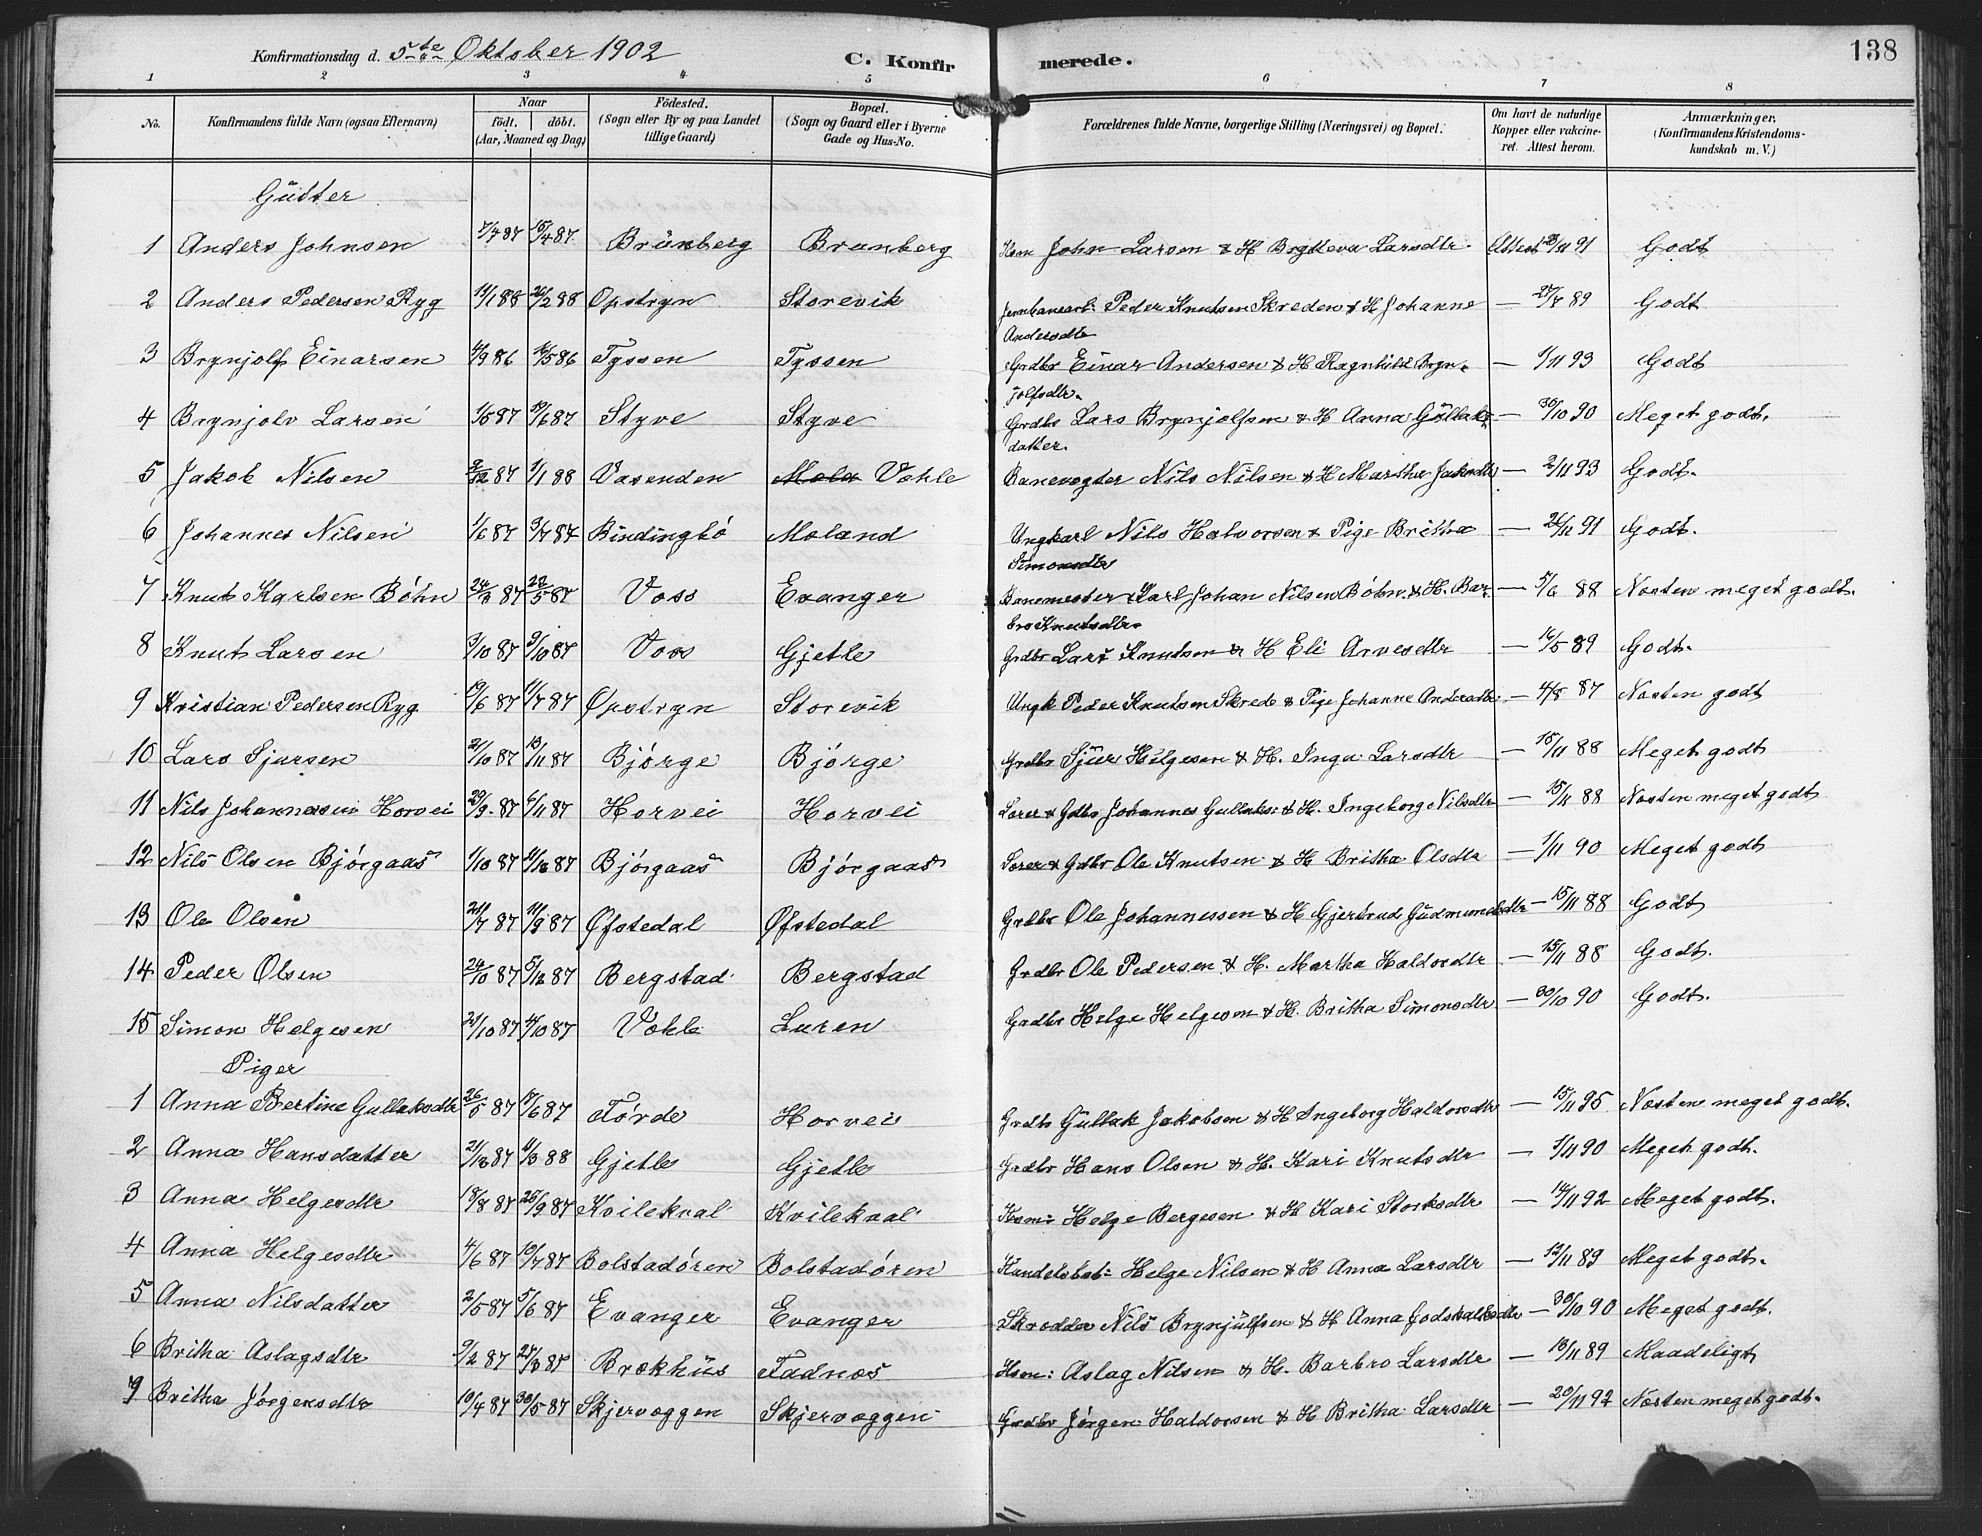 Konfirmationsdag d. 5te Oktober 1902 C. Konfirmerede. 138
1 2 3 4 5 6 7 8
No. Konfirmandens fulde Navn (ogsaa Efternavn) Naar født. døbt. (Aar, Maaned og Dag) Fødested. (Sogn eller By og paa Landet tillige Gaard) Bopæl. (Sogn og Gaard eller i Byerne Gade og Hus-No. Forældrenes fulde Navne, borgerlige Stilling (Næringsvei) og Bopæl. Om havt de naturlige Kopper eller vakcineret. Attest herom. Anmærkninger. (Konfirmandens Kristendomskundskab m. V.)
Gutter
1 Anders Johnsen 7/4 87 15/4 87 Brunberg Brunberg Hsm John Larsen & H Brytteva Larsdtr. Attest 91 Godt
2 Anders Pedersen Ryg 11/1 88 26/2 88 Opstryn Storevik Jernbanearb: Peder Knutsen Skreden & H Johanne
Andersdtr — 27/7 89 Godt
3 Brynjolf Einarsen 86 86 Tyssen Tyssen Grdbr Einar Andersen & H Ragnhild Bryn-
jolfsdtr. — 1/11 93 Godt
4 Brynjolv Larsen 1/5 87 19/6 87 Styve Styve Grdbr Lars Brynjolfsen & H Anna Gullaks-
datter. — 30/10 90 Meget godt.
5 Jakob Nilsen 9/12 87 1/1 88 Vasenden Væhle Banevogter Nils Nilsen & H Martha Jaksdtr — 2/11 93 Godt.
6 Johannes Nilsen 1/6 87 3/7 87 Bindingbø Moland Ungkarl Nils Halvorsen & Pige Britha
Simonsdtr — 26/11 91 Godt.
7 Knut Karlsen Bøhn 24/3 87 22/5 87 Voss Evanger Banemester Karl Johan Nilsen Bøhn & H. Bar-
bro Knutsdtr. — 5/6 88 Næsten meget godt.
8 Knut Larsen 3/10 87 9/10 87 Voss Gjetle Grdbr Lars Knutsen & H Eli Arvesdtr — 16/5 89 Godt.
9 Kristian Pedersen Ryg 19/6 87 1/7 87 Opstryn Storevik Ungk Peder Knutsen Skrede & Pige Johanne Andersdtr — 4/8 87 Næsten godt
10 Lars Sjursen 21/10 87 13/11 87 Bjørge Bjørge Grdbr Sjur Helgesen & H. Inga Larsdtr — 15/11 88 Meget godt
11 Nils Johannessen Horvei 29/9 87 6/11 87 Horvei Horvei Lærer & Gdbr Johannes Gullaks: & H. Ingeborg Nilsdtr — 15/11 88 Næsten meget godt
12 Nils Olsen Bjørgaas 1/10 87 87 Bjørgaas Bjørgaas Lærer & Gdbr Ole Knutsen & H Britha Olsdtr — 1/11 90 Meget godt
13 Ole Olsen 24/7 87 11/9 87 Øfstedal Øfstedal Grdbr Ole Johannessen & H Gjertrud Gudmundsdtr — 15/11 88 Godt
14 Peder Olsen 24/10 87 87 Bergstad Bergstad Grdbr Ole Pedersen & H. Martha Haldorsdtr — 15/11 88 Godt.
15 Simon Helgesen 2/10 87 4/10 87 Væhle Luren Grdbr Helge Helgesen & H. Britha Simonsdtr — 30/10 90 Godt.
Piger
1 Anna Bertine Gullaksdtr 26/5 87 17/6 87 Førde Horvei Grdbr Gullak Jakobsen & H Ingeborg Haldorsdtr — 15/11 95 Næsten meget godt.
2 Anna Hansdatter 87 88 Gjetle Gjetle Grdbr Hans Olsen & H. Kari Knutsdtr — 1/11 90 Meget godt.
3 Anna Helgesdtr 18/8 87 25/9 87 Kvilekval Kvilekval Hsm: Helge Bergesen & H Kari Storksdtr — 14/11 92 Meget godt.
4 Anna Helgesdtr 4/6 87 10/7 87 Bolstadøren Bolstadøren Handelsbet: Helge Nilsen & H Anna Larsdtr — 12/11 89 Meget godt.
5 Anna Nilsdatter 2/5 87 5/6 87 Evanger Evanger Skrædder Nils Brynjulfsen & H Anna Godskalksdtr — 30/10 90 Meget godt.
6 Britha Aslagsdtr 9/2 87 27/3 87 Brækhus Fadnæs Hsm: Aslag Nilsen & H. Barbro Larsdtr — 13/11 89 Maadeligt
7 Britha Jørgensdtr 10/4 87 30/5 87 Skjervæggen Skjervæggen Grdbr Jørgen Haldorsen & H Britha Larsdtr — 20/11 92 Næsten meget godt.